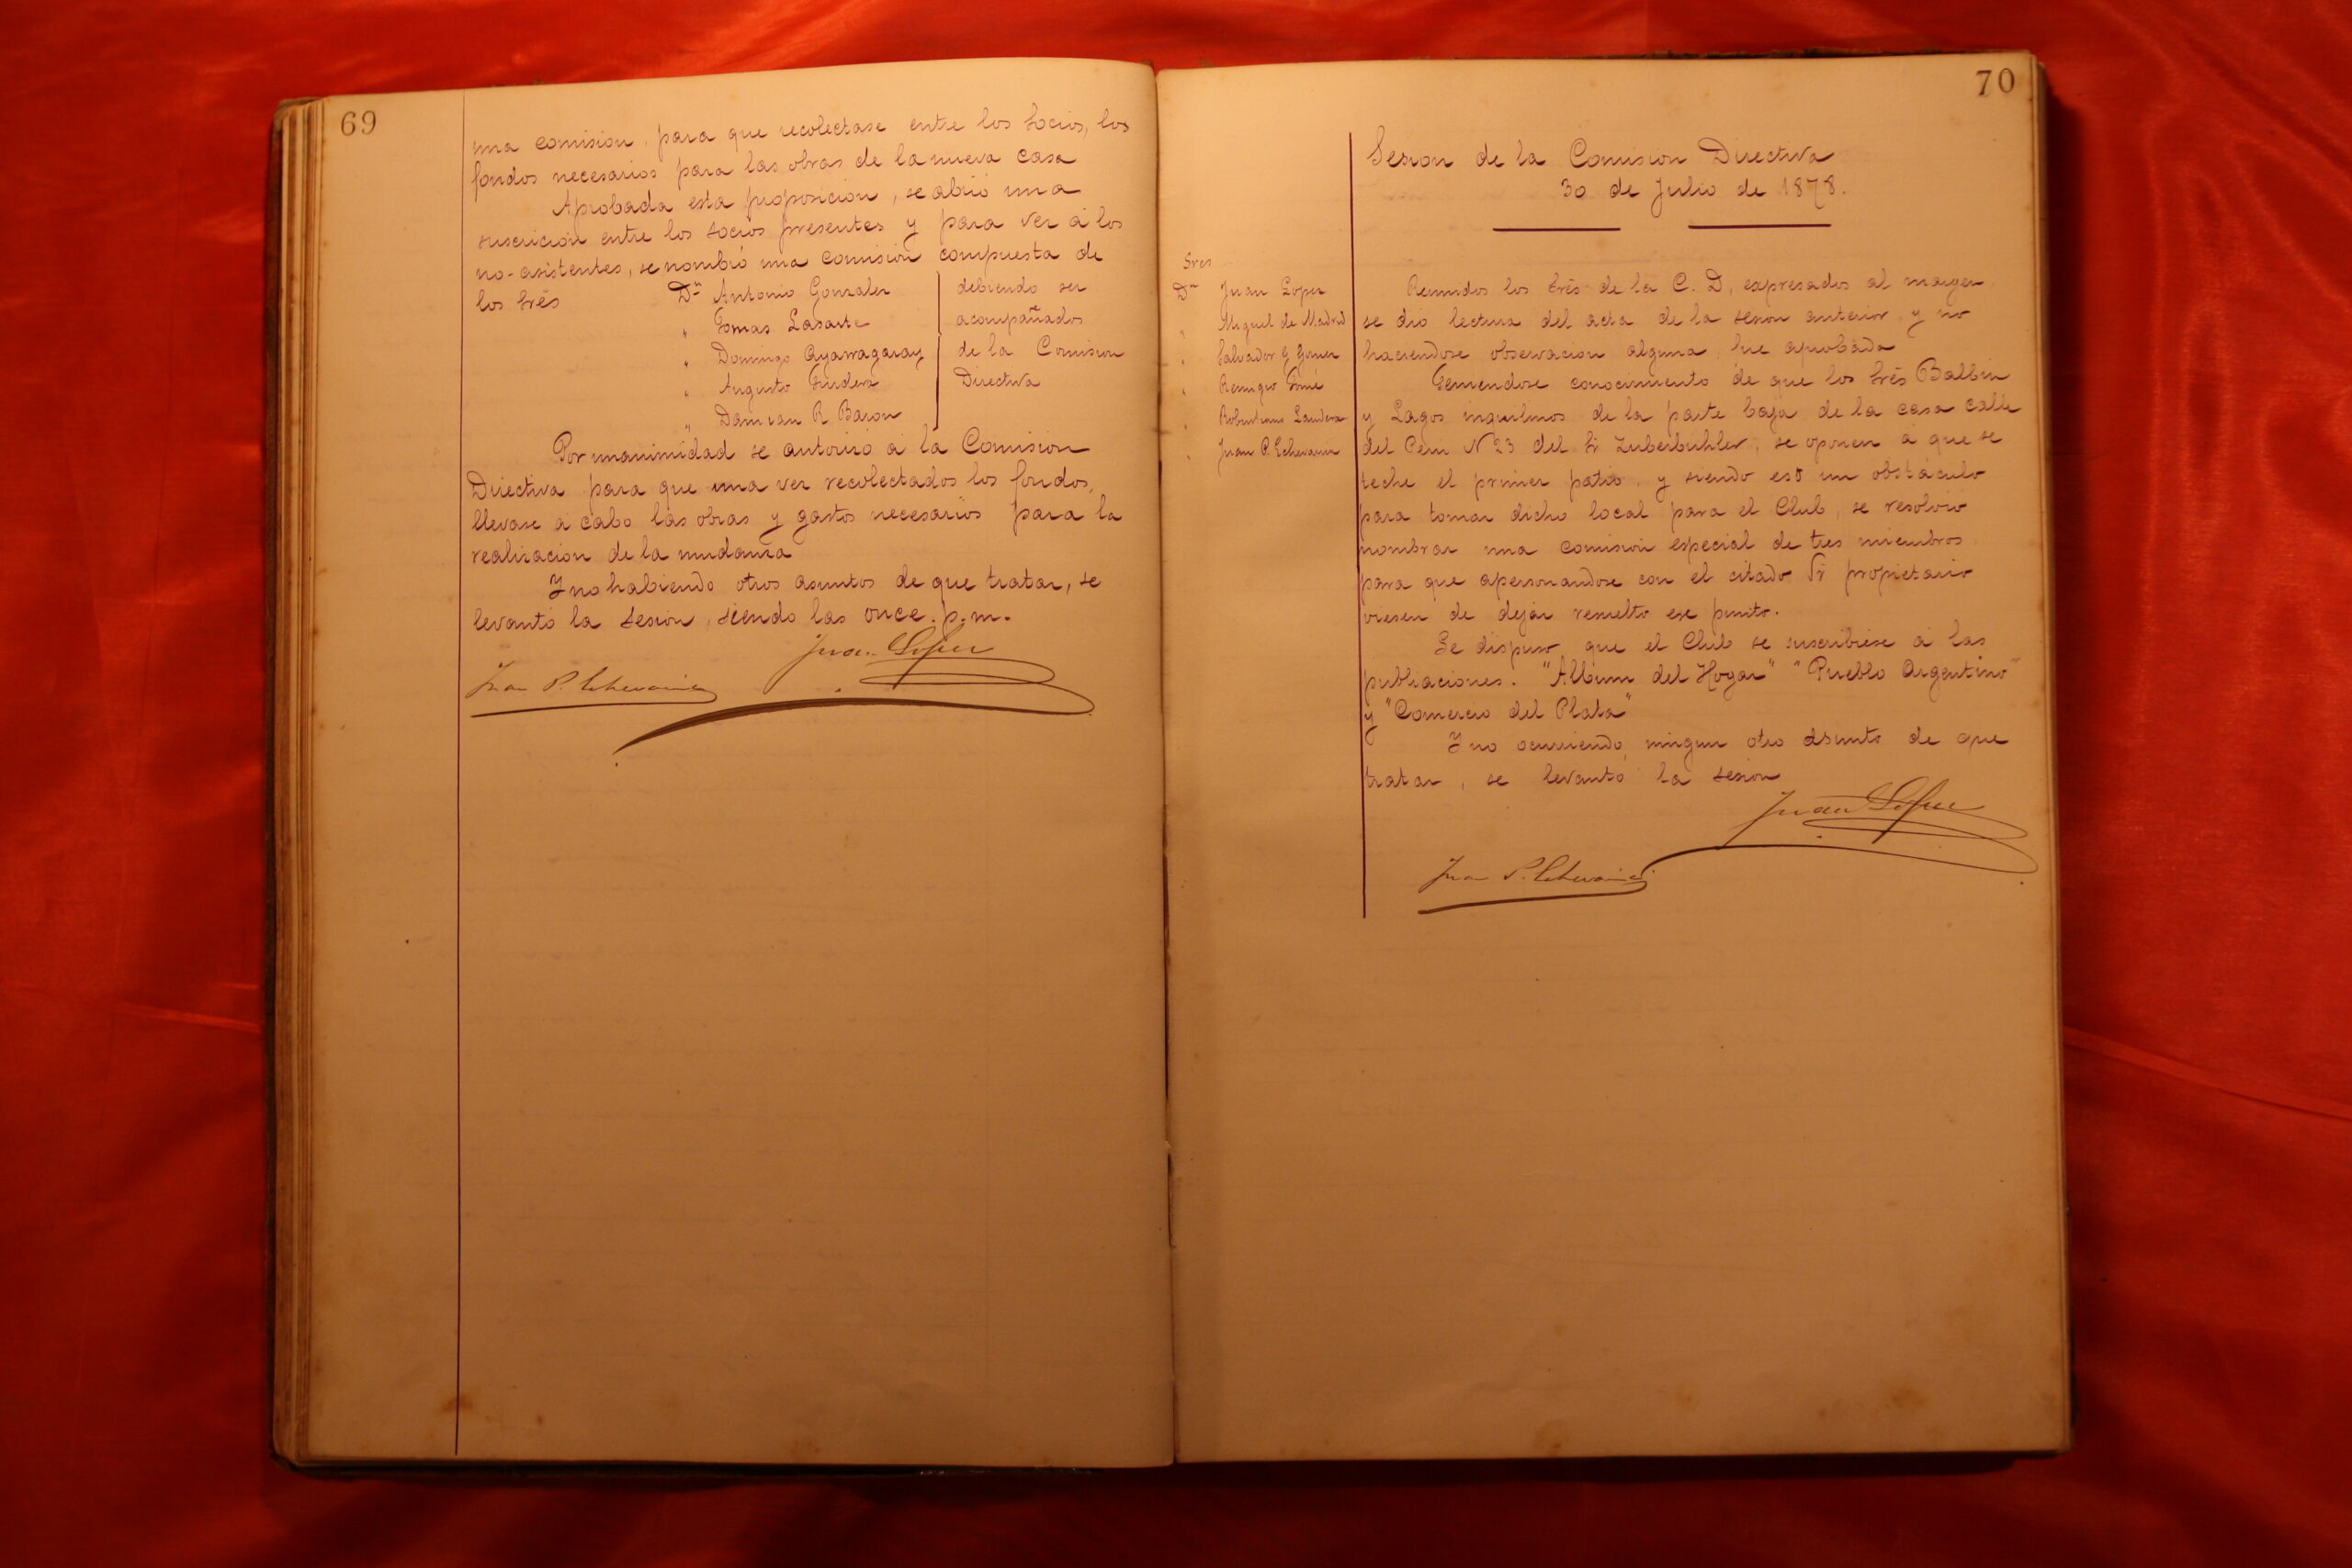 69
una comision, para que recolectase entre los Socios, los
fondos necesarios para las obras de la nueva casa
Aprobada esta proposicion, se abrió una
suscricion entre los socios presentes y para ver á los
no-asistentes, se nombró una comision compuesta de
los Srés Dn Antonio Gonzalez debiendo ser
" Tomas Lasarte acompañados
" Domingo Ayarragaray de la Comision
" Augusto Directiva
" Damian R Baron
Por unanimidad se autorizo á la Comision
Directiva para que una vez recolectados los fondos,
llevase á cabo las obras y gastos necesarios para la
realizacion de la mudanza
Y no habiendo otros asuntos de que tratar, se
levantó la sesion, siendo las once. p.m.
Juan Lopez
Juan P. Echevarria
70
Sesion de la Comision Directiva
30 de Julio de 1878.
Sres
Dn Juan Lopez
" Miguel de Madrid
" Salvador G Gomez
" Remigio Tomé
" Landera
" Juan P. Echevarria
Reunidos los Srés de la C. D, expresados al margen
se dió lectura del acta de la sesion anterior y no
haciendose observacion alguna fue aprobada
Teniendose conocimiento de que los Srés Balbin
y Lagos inquilinos de la parte baja de la casa calle
del Perú N 23 del Sr Zuberbuhler, se oponen á que se
teche el primer patio, y siendo esto un obstáculo
para tomar dicho local para el Club, se resolvió
nombrar una comision especial de tres miembros
para que apersonandose con el citado Sr propietario
viesen de dejar resuelto ese punto.
Se dispuso que el Club se suscribiese á las
publiaciones. "Album del Hogar" "Pueblo Argentino"
y "Comercio del Plata"
Y no ocurriendo ningun otro asunto de que
tratar, se levantó la sesion
Juan Lopez
Juan P. Echevarria